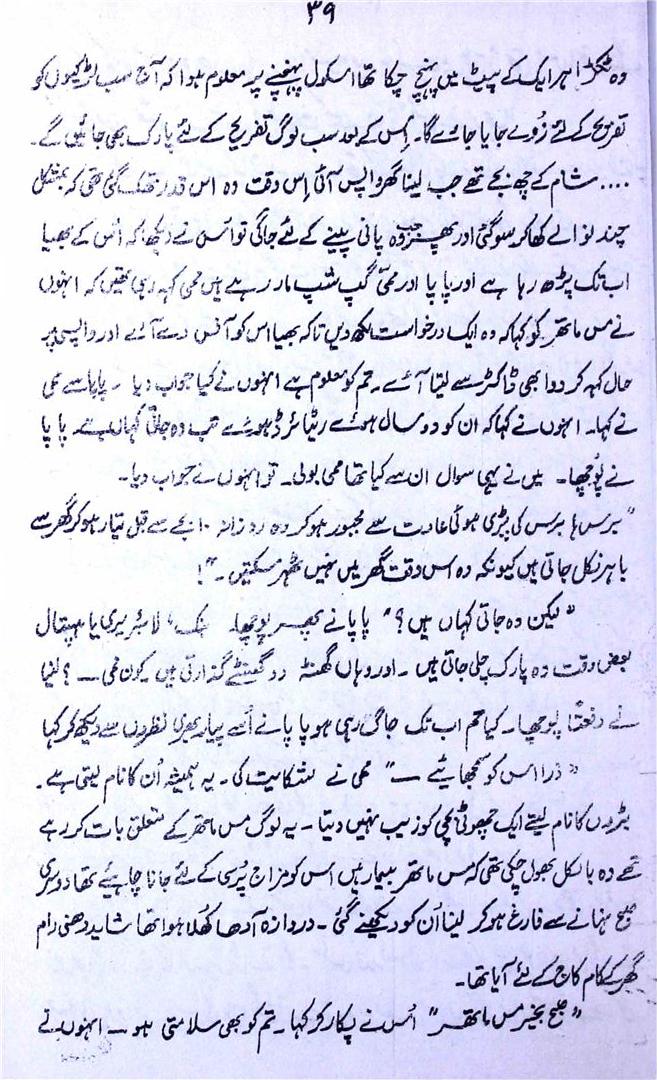 ۳۹
وہ ٹکڑا ہر ایک کے پیٹ میں پہنچ چکا تھا اسکول پہنچنے پر معلوم ہوا کہ آج سب لڑکیوں کو
تفریح کے لئے زُو لے جایا جائے گا۔ اِس کے بعد سب لوگ تفریح کے لئے پارک بھی جائیں گے۔
.... شام کے چھ بجے تھے جب لینا گھر واپس آئی اِس وقت وہ اس قدر تھک گئی تھی کہ بمشکل
چند نوالے کھا کر سو گئی اور پھر جب وہ پانی پینے کے لئے جاگی تو اس نے دیکھا کہ اُس کے بھیا
اب تک پڑھ رہا ہے اور پاپا اور ممی گپ شپ مار رہے ہیں ممی کہہ رہی تھیں کہ انہوں
نے مس ماتھر کو کہا کہ وہ ایک درخواست لکھ دیں تاکہ بھیا اس کو آفس دے آئے اور واپسی پر
حال کہہ کر دوا بھی ڈاکٹر سے لیتا آئے۔ تم کو معلوم ہے انہوں نے کیا جواب دیا۔ پاپا سے ممی
نے کہا۔ انہوں نے کہا کہ ان کو دو سال ہوئے ریٹائرڈ ہوئے تب وہ جاتی کہاں ہے۔ پاپا
نے پُوچھا۔ میں نے یہی سوال ان سے کیا تھا ممی بولی۔ تو انہوں نے جواب دیا۔
"برس ہا برس کی پڑی ہوئی عادت سے مجبور ہو کر وہ روزانہ ۱۰ بجے سے قبل تیار ہو کر گھر سے
باہر نکل جاتی ہیں کیونکہ وہ اس وقت گھر میں نہیں ٹھہر سکتیں۔"!
"لیکن وہ جاتی کہاں ہیں؟" پاپا نے پھر پوچھا۔ لائبریری یا ہسپتال
بعض وقت وہ پارک چلی جاتی ہیں۔ اور وہاں گھنٹہ دو گھنٹے گذارتی ہیں۔ کون ممی ــ؟ لینا
نے دفعتاً پوچھا۔ کیا تم اب تک جاگ رہی ہو پاپا نے اُسے پیار بھری نظروں سے دیکھ کر کہا
"ذرا اس کو سمجھائیے ــ" ممی نے شکایت کی۔ یہ ہمیشہ اُن کا نام لیتی ہے۔
بڑوں کا نام لیتے ایک چھوٹی بچی کو زیب نہیں دیتا۔ یہ لوگ مس ماتھر کے متعلق بات کر رہے
تھے وہ بالکل بھول چکی تھی کہ مس ماتھر بیمار ہیں اس کو مزاج پُرسی کے لئے جانا چاہیئے تھا دوسری
صبح نہانے سے فارغ ہو کر لینا اُن کو دیکھنے گئی۔ دروازہ آدھا کھُلا ہوا تھا شاید دھنی رام
گھر کے کام کاج کے لئے آیا تھا۔
"صبح بخیر مس ماتھر" اُس نے پکار کر کہا۔ تم کو بھی سلامتی ہو ــ انہوں نے